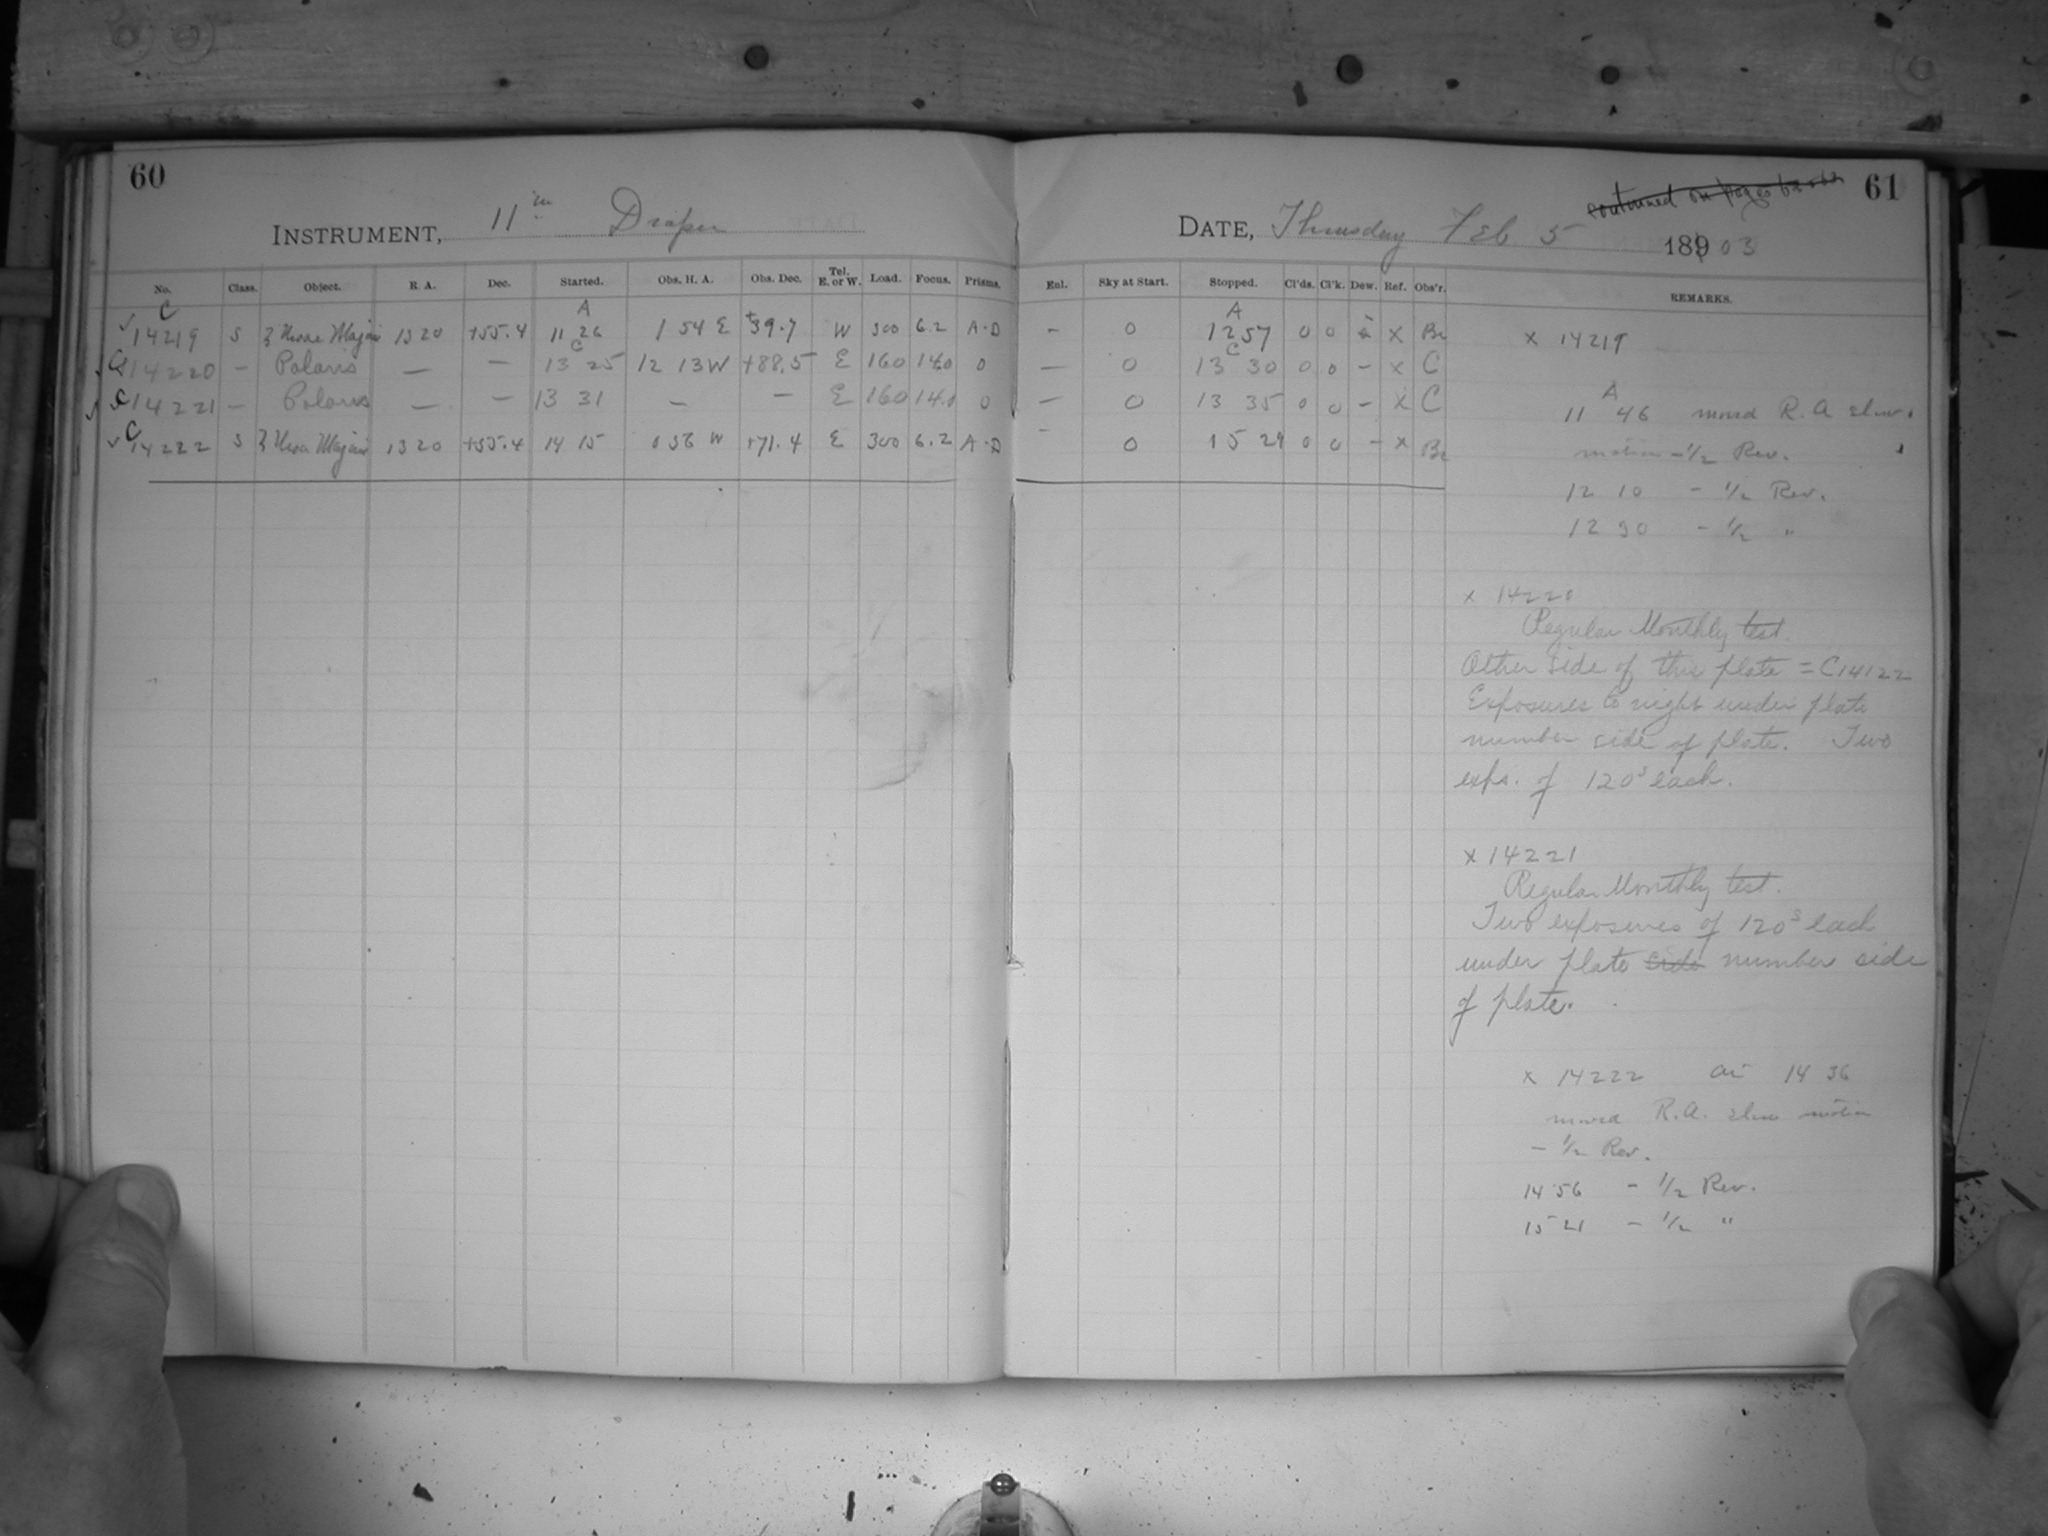 60
INSTRUMENT, 11 in Draper
No. Class. Object. R A. Dec. Started. Obs. H. A. Obs. Dec. Tel. E. or W. Load. Focus. Prisms.
C A
✓ 14219 S ζ Ursae Majoris 13 20 +55.4 11 26 1 54 E +39.7 W 300 6.2 A-D
C
C 14220 - Polaris — — 13 25 12 13 W +88.5 E 160 14.0 0
C 14221 - Polaris — — 13 31 — — E 160 14.0 0
✓ C 14222 S ζ Ursa Majoris 13 20 +55.4 14 15 0 56 W +71.4 E 300 6.2 A-D
continued on pages 62 & 63
61
DATE, Thursday Feb 5 1890 03
Enl. Sky at Start. Stopped. Cl'ds. Cl'k. Dew. Ref. Obs'r. REMARKS.
A
- 0 12 57 0 0 x Be
C
— 0 13 30 0 0 - x C
— 0 13 35 0 0 - x C
- 0 15 29 0 0 - x Be
x 14219
A
11 46 moved R.A slow
motion -1/2 Rev.
12 10 - 1/2 Rev.
12 30 - 1/2 "
x 14220
Regular Monthly test.
Other side of this plate = C14122
Exposures to night under plate
number side of plate. Two
exps. of 120s each.
x 14221
Regular Monthly test.
Two exposures of 120s each
under plate side number side
of plate.
x 14222 At 14 36
moved R.A. slow motion
- 1/2 Rev.
14 56 - 1/2 Rev.
15 21 - 1/2 "